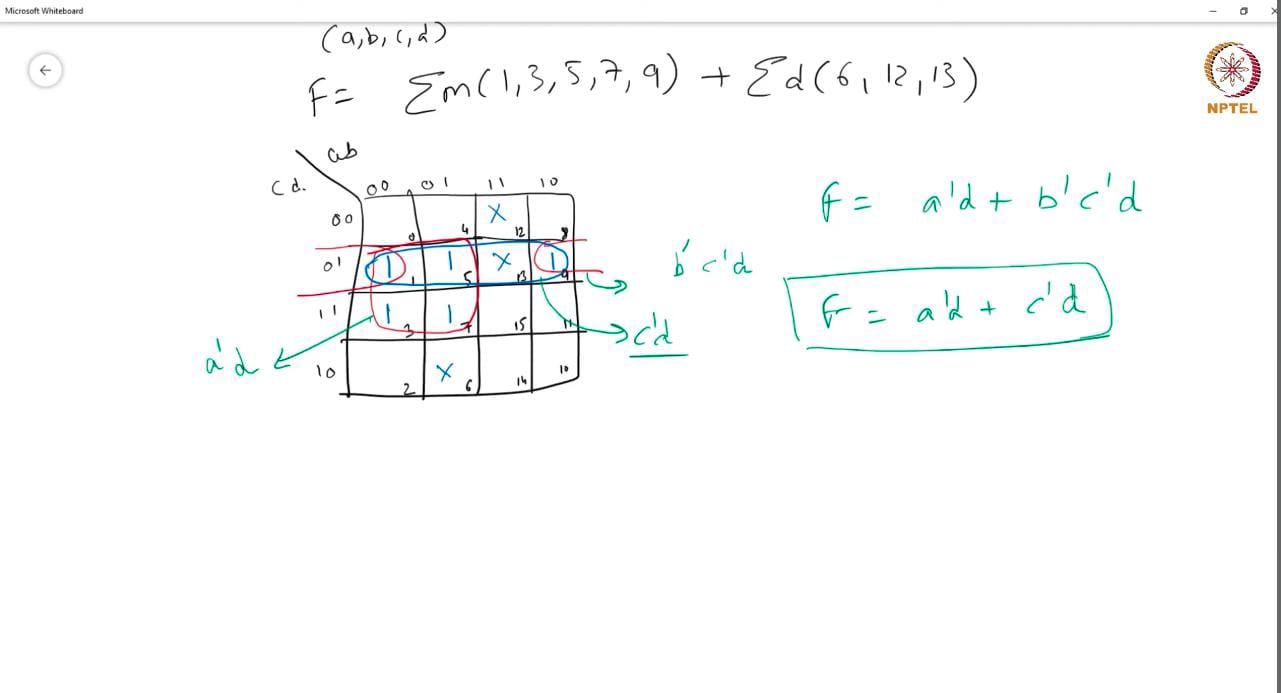 Microsoft Whiteboard
(a,b,c,d)
F= Σm(1,3,5,7,9) + Σd(6,12,13)
NPTEL
ab
cd.
00 01 11 10
00 0 4 X 12 8
01 1 1 1 5 X 13 1 9
11 1 3 1 7 15 11
10 2 X 6 14 10
a'd
b'c'd
c'd
F = a'd + b'c'd
F = a'd + c'd